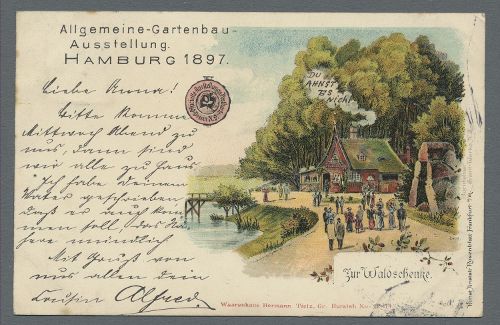 Allgemeine-Gartenbau-
Ausstellung.
HAMBURG 1897.
DU
AHNST
ES
NICHT
Liebe Anna!
Bitte komme
Mittwoch Abend zu
uns, dann sind
wir alle zu Haus
Ich habe Deinem
Vater geschrieben
daß er auch kom
men soll, das
mündlich
Mit Gruß von
uns allen dein
Cousin Alfred.
Zur Waldschenke.
Waarenhaus Hermann Tietz, Gr. Burstah